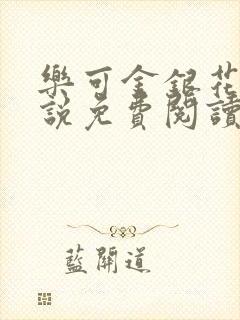 樂可金銀花
說免費閱讀
藍開道